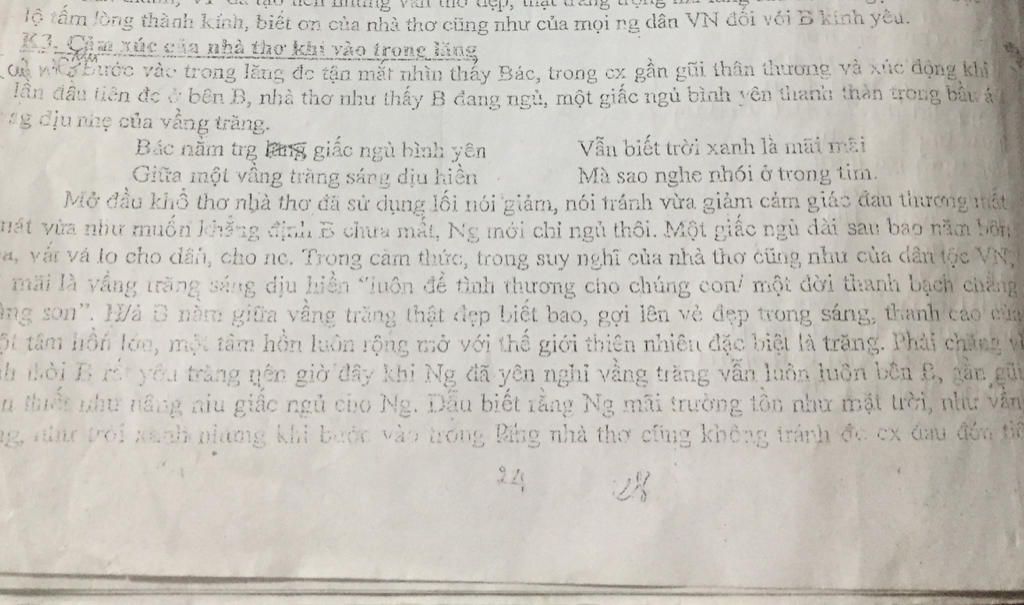 lộ tấm lòng thành kính, biết ơn của nhà thơ cũng như của mọi ng dân VN đối với B kính yêu.
K3. Cảm xúc của nhà thơ khi vào trong lăng
bước vào trong lăng đc tận mắt nhìn thấy Bác, trong cx gần gũi thân thương và xúc động khi
lần đầu tiên đc ở bên B, nhà thơ như thấy B đang ngủ, một giấc ngủ bình yên thanh thản trong bầu á
ng dịu nhẹ của vầng trăng.
Bác nằm trg giấc ngủ bình yên Vẫn biết trời xanh là mãi mãi
Giữa một vầng trăng sáng dịu hiền Mà sao nghe nhói ở trong tim.
Mở đầu khổ thơ nhà thơ đã sử dụng lối nói giảm, nói tránh vừa giảm cảm giác đau thương mất
mát vừa như muốn khẳng định B chưa mất, Ng mới chỉ ngủ thôi. Một giấc ngủ dài sau bao năm bôn
a, vất vả lo cho dân, cho nc. Trong cảm thức, trong suy nghĩ của nhà thơ cũng như của dân tộc VN,
mãi là vầng trăng sáng dịu hiền “luôn để tình thương cho chúng con/ một đời thanh bạch chẳng
àng son”. H/á B nằm giữa vầng trăng thật đẹp biết bao, gợi lên vẻ đẹp trong sáng, thanh cao của
ột tâm hồn lớn, một tâm hồn luôn rộng mở với thế giới thiên nhiên đặc biệt là trăng. Phải chăng vì
h thời B rất yêu trăng nên giờ đây khi Ng đã yên nghỉ vầng trăng vẫn luôn luôn bên B, gần gũi
n thiết như nâng niu giấc ngủ cho Ng. Dẫu biết rằng Ng mãi trường tồn như mặt trời, như vần
ng, như trời xanh nhưng khi bước vào trong lăng nhà thơ cũng không tránh đc cx đau đớn tiế
24 28